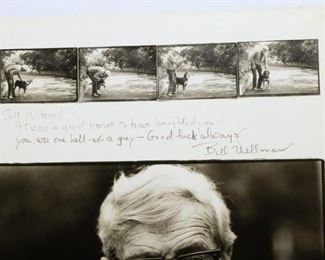 Sir Richard—
It was a great honor to have knighted you
you are one hell-of a guy—Good luck always!
Bill Wellman